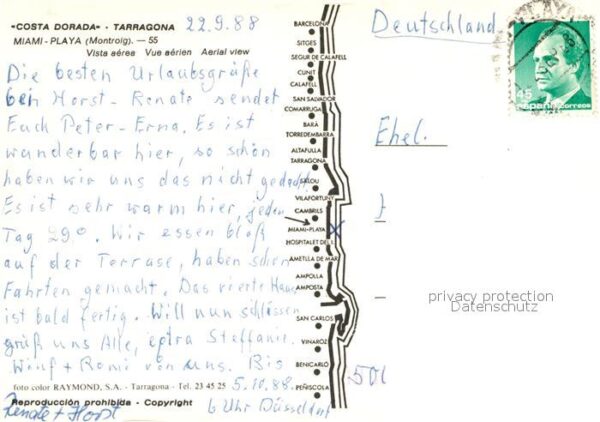 "COSTA DORADA" - TARRAGONA 22.9.88
MIAMI-PLAYA (Montroig). — 55
Vista aérea Vue aérien Aerial view
Die besten Urlaubsgrüße
bein Horst-Renate sendet
Euch Peter-Erna. Es ist
wunderbar hier, so schön
haben wir uns das nicht gedacht
Es ist sehr warm hier, jeden
Tag 29°. Wir essen bloß
auf der Terrase, haben schon
Fahrten gemacht. Das vierte Haus
ist bald fertig. Will nun schlüssen
grüß uns Alle, extra Steffanie.
Winf + Romi von uns. Bis
foto color RAYMOND, S.A. - Tarragona - Tel. 23 45 25 5.10.88
Reproducción prohibida - Copyright 6 Uhr Düsseldorf
Renate + Horst
BARCELONA
SITGES
SEGUR DE CALAFELL
CUNIT
CALAFELL
SAN SALVADOR
COMARRUGA
BARÁ
TORREDEMBARRA
ALTAFULLA
TARRAGONA
SALOU
VILAFORTUNY
CAMBRILS
MIAMI-PLAYA
HOSPITALET DEL I.
AMETLLA DE MAR
AMPOLLA
AMPOSTA
SAN CARLOS
VINAROZ
BENICARLO
PEÑISCOLA
Deutschland
45
España correos
Ehel.
privacy protection
Datenschutz